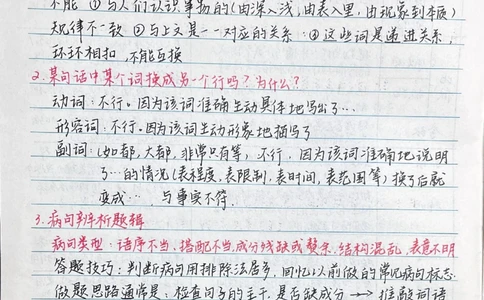 不能 ①与人们认识事物的(由深入浅,由表入里,由现象到本质)
规律不一致 ②与上文是一一对应的关系.③这些词是递进关系,
环环相扣,不能互换
2.某句话中某个词换成另一个行吗?为什么?
动词:不行。因为该词准确生动具体地写出了…
形容词:不行。因为该词生动形象地描写了
副词:(如都,大都,非常只有等),不行,因为该词准确地说明
了…的情况(表程度,表限制,表时间,表范围等)换了后就
变成…,与事实不符.
3.病句辨析题辑
病句类型:语序不当、搭配不当,成分残缺或赘余、结构混乱,表意不明
答题技巧:判断病句用排除法居多,回忆以前做的常见病句标志
做题思路通常是:检查句子的主干,是否缺成分→ 推敲词语